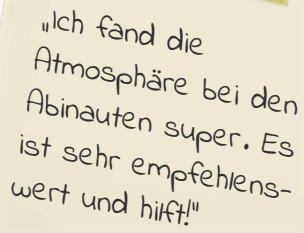 „Ich fand die
Atmosphäre bei den
Abinauten super. Es
ist sehr empfehlens-
wert und hilft!"